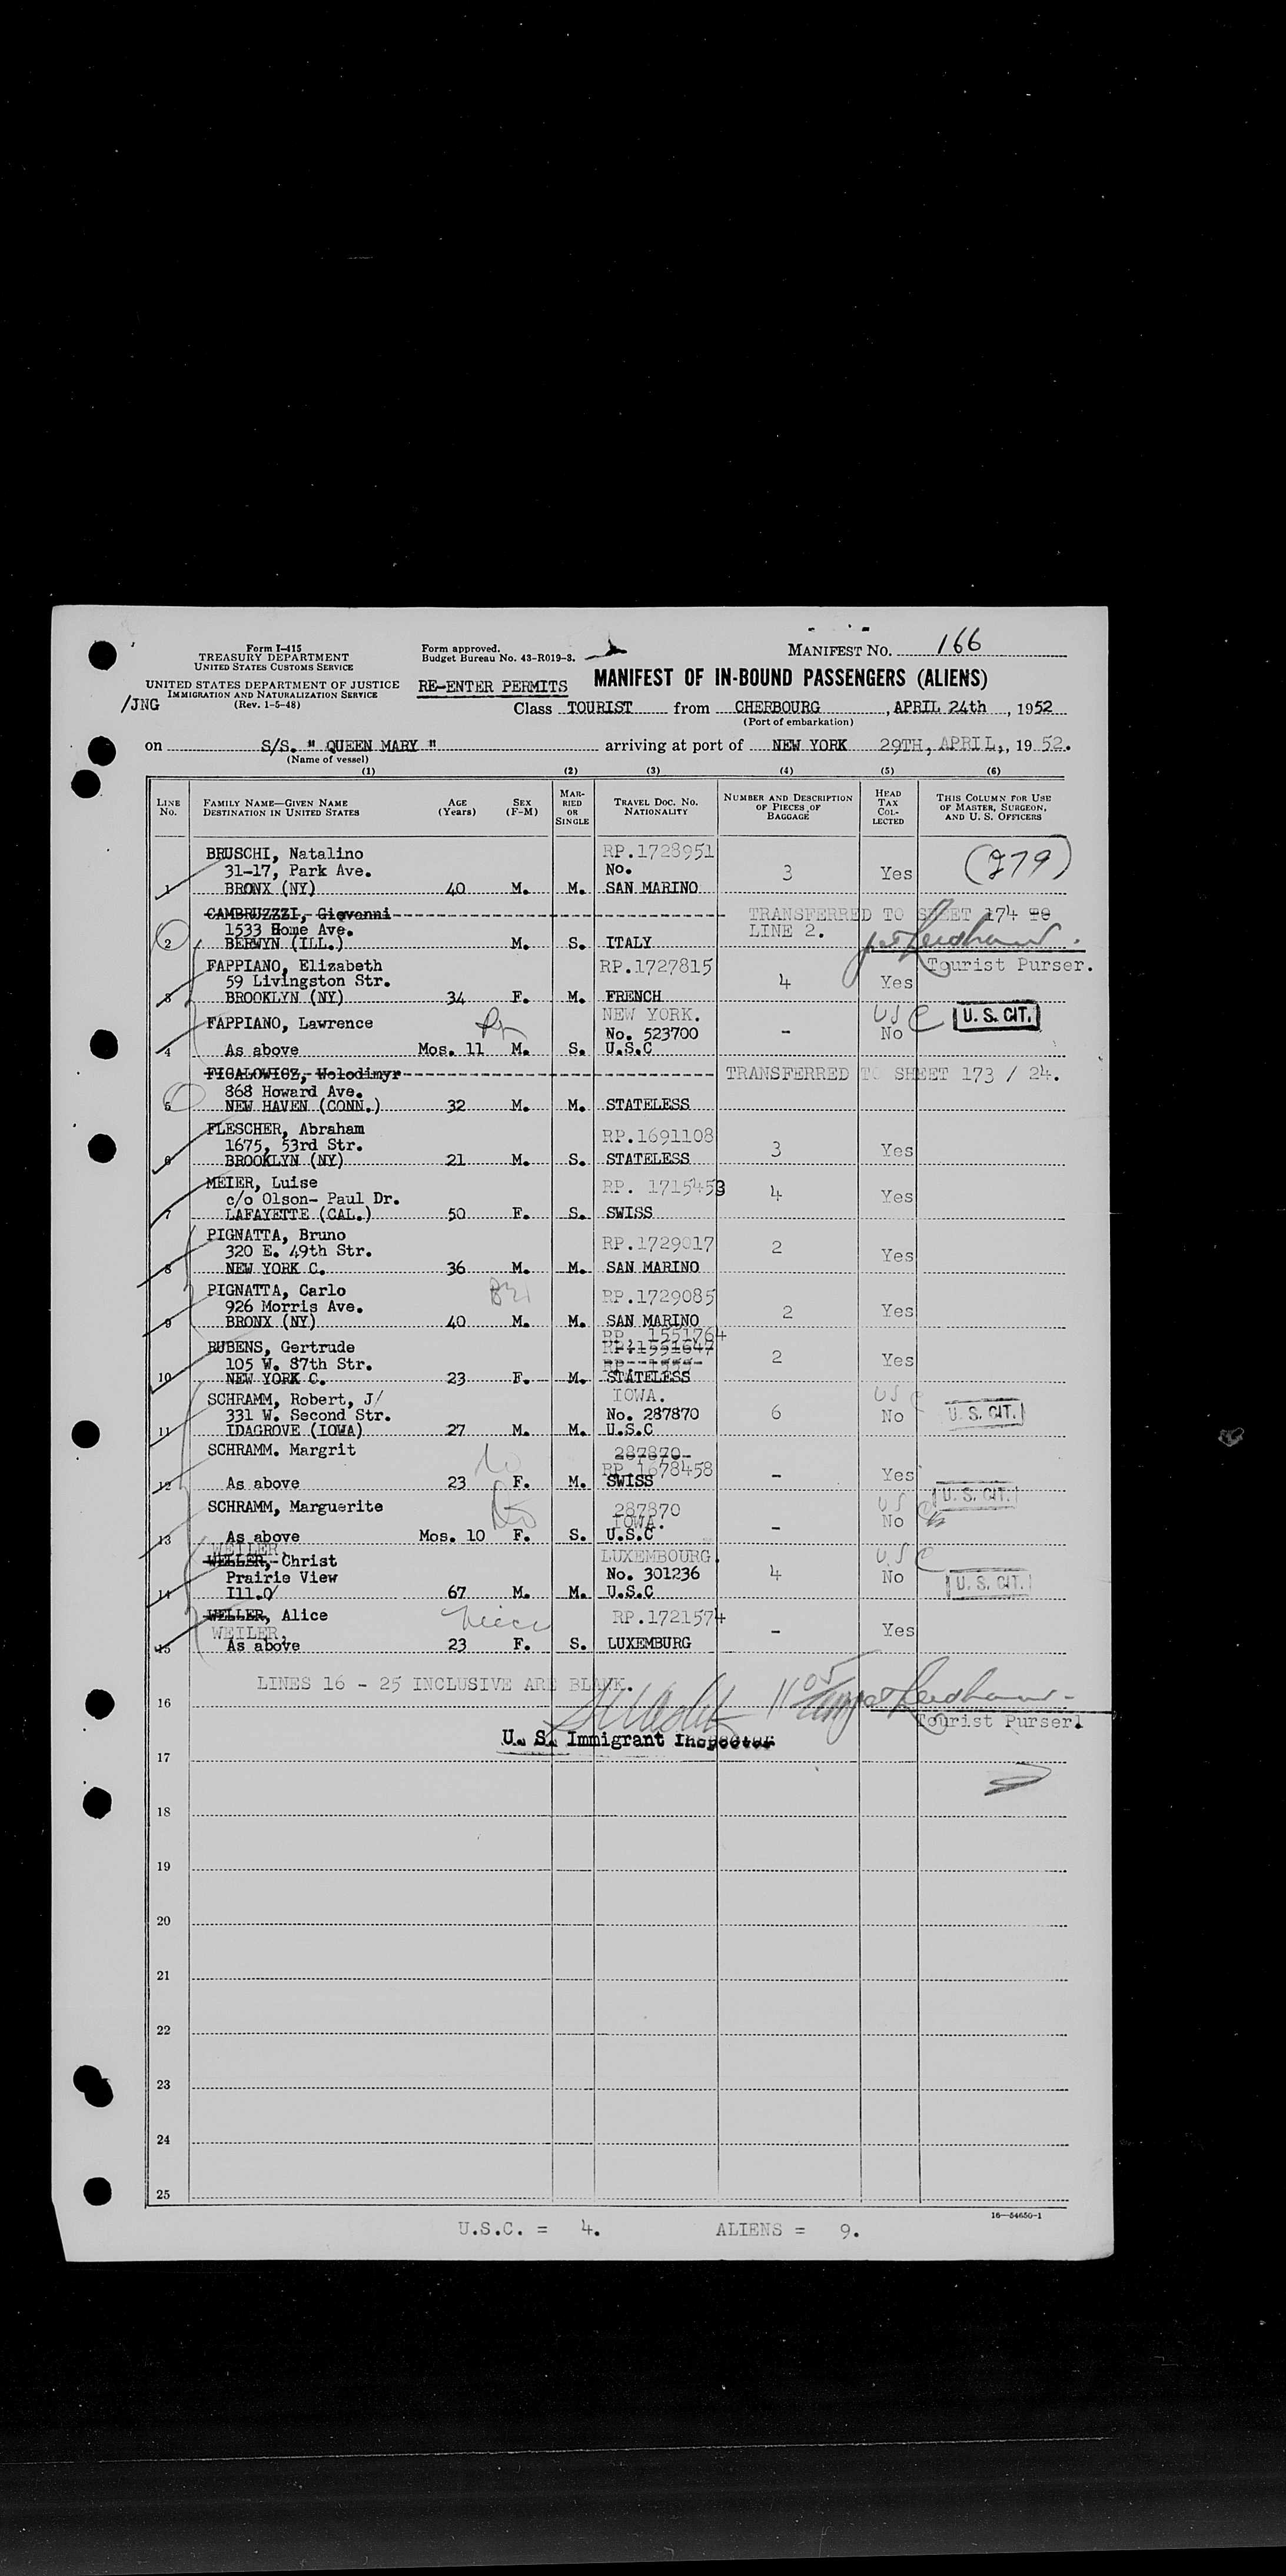 Form I-415
TREASURY DEPARTMENT
UNITED STATES CUSTOMS SERVICE
UNITED STATES DEPARTMENT OF JUSTICE
IMMIGRATION AND NATURALIZATION SERVICE
(Rev. 1-5-48)
/JNG
Form approved.
Budget Bureau No. 43-R019-3.
RE-ENTER PERMITS
MANIFEST NO. 166
MANIFEST OF IN-BOUND PASSENGERS (ALIENS)
Class TOURIST from CHERBOURG, APRIL 24th, 1952
(Port of embarkation)
on S/S. " QUEEN MARY " arriving at port of NEW YORK 29TH, APRIL,, 1952.
(Name of vessel)
(1) (2) (3) (4) (5) (6)
LINE NO. FAMILY NAME—GIVEN NAME DESTINATION IN UNITED STATES AGE (Years) SEX (F-M) MARRIED OR SINGLE TRAVEL DOC. NO. NATIONALITY NUMBER AND DESCRIPTION OF PIECES OF BAGGAGE HEAD TAX COLLECTED THIS COLUMN FOR USE OF MASTER, SURGEON, AND U. S. OFFICERS
BRUSCHI, Natalino RP.1728951
31-17, Park Ave. No. 3 Yes (279)
1 BRONX (NY) 40 M. M. SAN MARINO
CAMBRUZZI, Giovanni TRANSFERRED TO SHEET 174
1533 Home Ave. LINE 2.
2 BERWYN (ILL.) M. S. ITALY
Tourist Purser.
FAPPIANO, Elizabeth RP.1727815
59 Livingston Str. 4 Yes
3 BROOKLYN (NY) 34 F. M. FRENCH
NEW YORK. USC U. S. CIT.
FAPPIANO, Lawrence No. 523700 - No
4 As above Mos. 11 M. S. U.S.C
FIGALOWICZ, Wolodimyr TRANSFERRED TO SHEET 173 / 24.
868 Howard Ave.
5 NEW HAVEN (CONN.) 32 M. M. STATELESS
FLESCHER, Abraham RP.1691108
1675, 53rd Str. 3 Yes
6 BROOKLYN (NY) 21 M. S. STATELESS
MEIER, Luise RP. 1715453
c/o Olson- Paul Dr. 4 Yes
7 LAFAYETTE (CAL.) 50 F. S. SWISS
PIGNATTA, Bruno RP.1729017
320 E. 49th Str. 2 Yes
8 NEW YORK C. 36 M. M. SAN MARINO
PIGNATTA, Carlo RP.1729085
926 Morris Ave. 2 Yes
9 BRONX (NY) 40 M. M. SAN MARINO
RP. 1551764
RUBENS, Gertrude RP.1551647
105 W. 87th Str. 2 Yes
10 NEW YORK C. 23 F. M. STATELESS
SCHRAMM, Robert, J/ IOWA. USC
331 W. Second Str. No. 287870 6 No U. S. CIT.
11 IDAGROVE (IOWA) 27 M. M. U.S.C
SCHRAMM. Margrit 287870
RP 1678458
12 As above 23 F. M. SWISS - Yes
U. S. CIT.
SCHRAMM, Marguerite 287870 US
IOWA. No
13 As above Mos. 10 F. S. U.S.C -
WEILER
WELLER, Christ LUXEMBOURG. USC
Prairie View No. 301236 4 No U. S. CIT.
14 Ill.0/ 67 M. M. U.S.C
WELLER, Alice niece RP.1721574
WEILER, - Yes
15 As above 23 F. S. LUXEMBURG
LINES 16 - 25 INCLUSIVE ARE BLANK.
16
Tourist Purser
U. S. Immigrant Inspector
17
18
19
20
21
22
23
24
25
16—54650-1
U.S.C. = 4. ALIENS = 9.